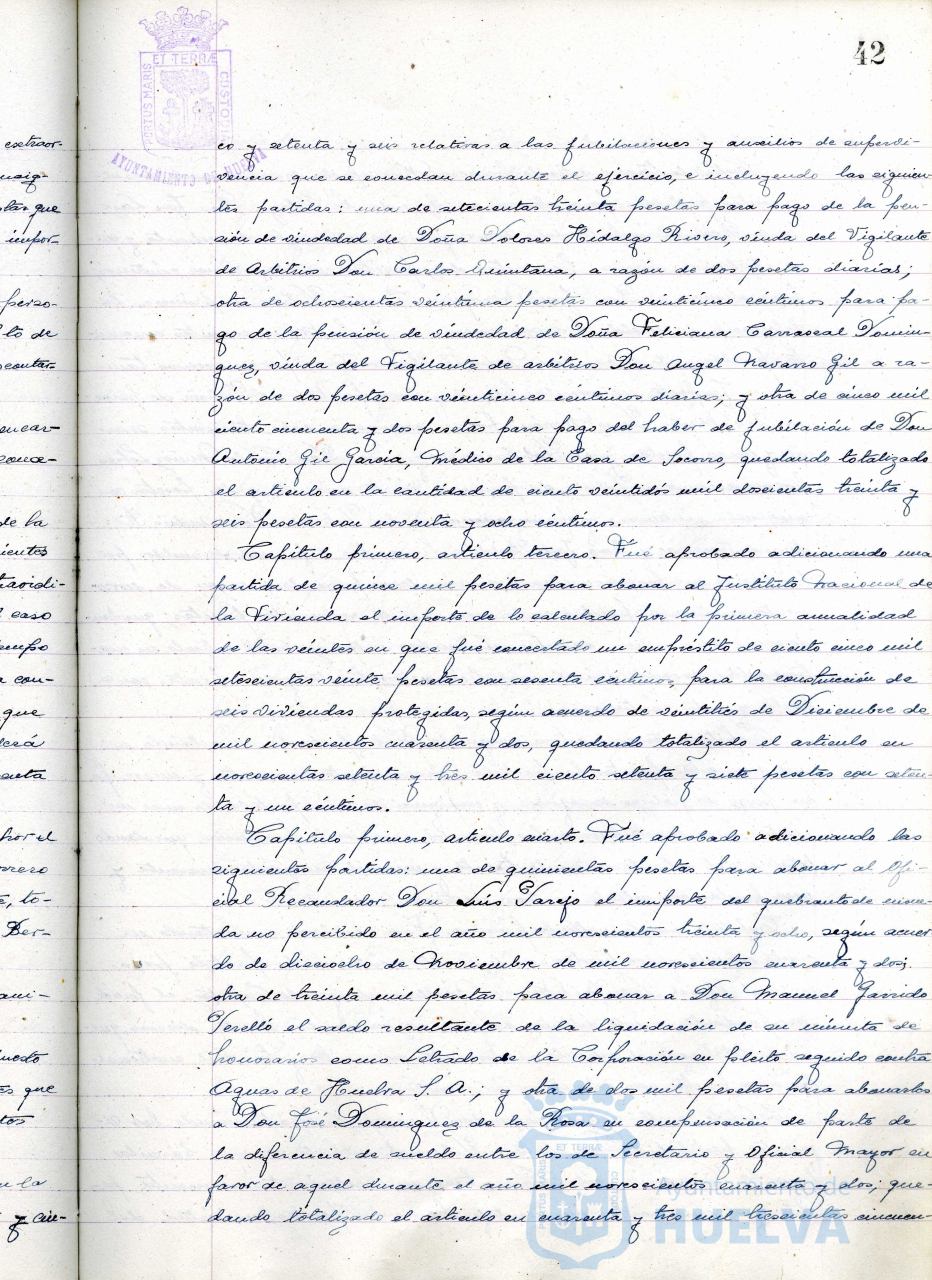 42
PORTUS MARIS ET TERRÆ CUSTODIA
AYUNTAMIENTO DE HUELVA
extraor-
co y setenta y seis relativas a las jubilaciones y auxilios de supervi-
vencia que se concedan durante el ejercicio, e incluyendo las siguien-
las que
tes partidas: una de setecientas treinta pesetas para pago de la pen-
impor-
sión de viudedad de Doña Dolores Hidalgo Rivero, viuda del Vigilante
de Arbitrios Don Carlos Quintana, a razón de dos pesetas diarias;
perso-
otra de ochocientas veintiuna pesetas con veinticinco céntimos para pa-
to de
go de la pensión de viudedad de Doña Feliciana Carrascal Domin-
contar-
guez, viuda del Vigilante de arbitrios Don Angel Navarro Gil a ra-
zón de dos pesetas con veinticinco céntimos diarias; y otra de cinco mil
encar-
ciento cincuenta y dos pesetas para pago del haber de jubilación de Don
conce-
Antonio Gil García, Médico de la Casa de Socorro, quedando totalizado
el articulo en la cantidad de ciento veintidós mil doscientas treinta y
de la
seis pesetas con noventa y ocho céntimos.
cientes
Capítulo primero, articulo tercero. Fué aprobado adicionando una
traordi-
partida de quince mil pesetas para abonar al Instituto Nacional de
caso
la Vivienda el importe de lo calculado por la primera anualidad
empo
de las veintes en que fué concertado un empréstito de ciento cinco mil
a con-
setescientas veinte pesetas con sesenta céntimos, para la construcción de
que
seis viviendas protegidas, según acuerdo de veintitrés de Diciembre de
derá
mil novescientos cuarenta y dos, quedando totalizado el articulo en
enta
novescientas setenta y tres mil ciento setenta y siete pesetas con seten-
ta y un céntimos.
por el
Capítulo primero, articulo cuarto. Fué aprobado adicionando las
siguientes partidas: una de quinientas pesetas para abonar al Ofi-
to-
cial Recaudador Don Luis Tarejo el importe del quebranto de mone-
Ber-
da no percibido en el año mil novescientos treinta y ocho, según acuer
do de dieciocho de Noviembre de mil novescientos cuarenta y dos;
otra de treinta mil pesetas para abonar a Don Manuel Garrido
Perelló el saldo resultante de la liquidación de su minuta de
uesto
honorarios como Letrado de la Corporación en pleito seguido contra
que
Aguas de Huelva S. A.; y otra de dos mil pesetas para abonarlas
tos
a Don José Dominguez de la Rosa en compensación de parte de
la diferencia de sueldo entre los de Secretario y Oficial Mayor en
en la
favor de aquel durante el año mil novescientos cuarenta y dos; que-
y cin-
dando totalizado el articulo en cuarenta y tres mil trescientas cincuen-
PORTUS MARIS ET TERRÆ CUSTODIA
Ayuntamiento de
HUELVA